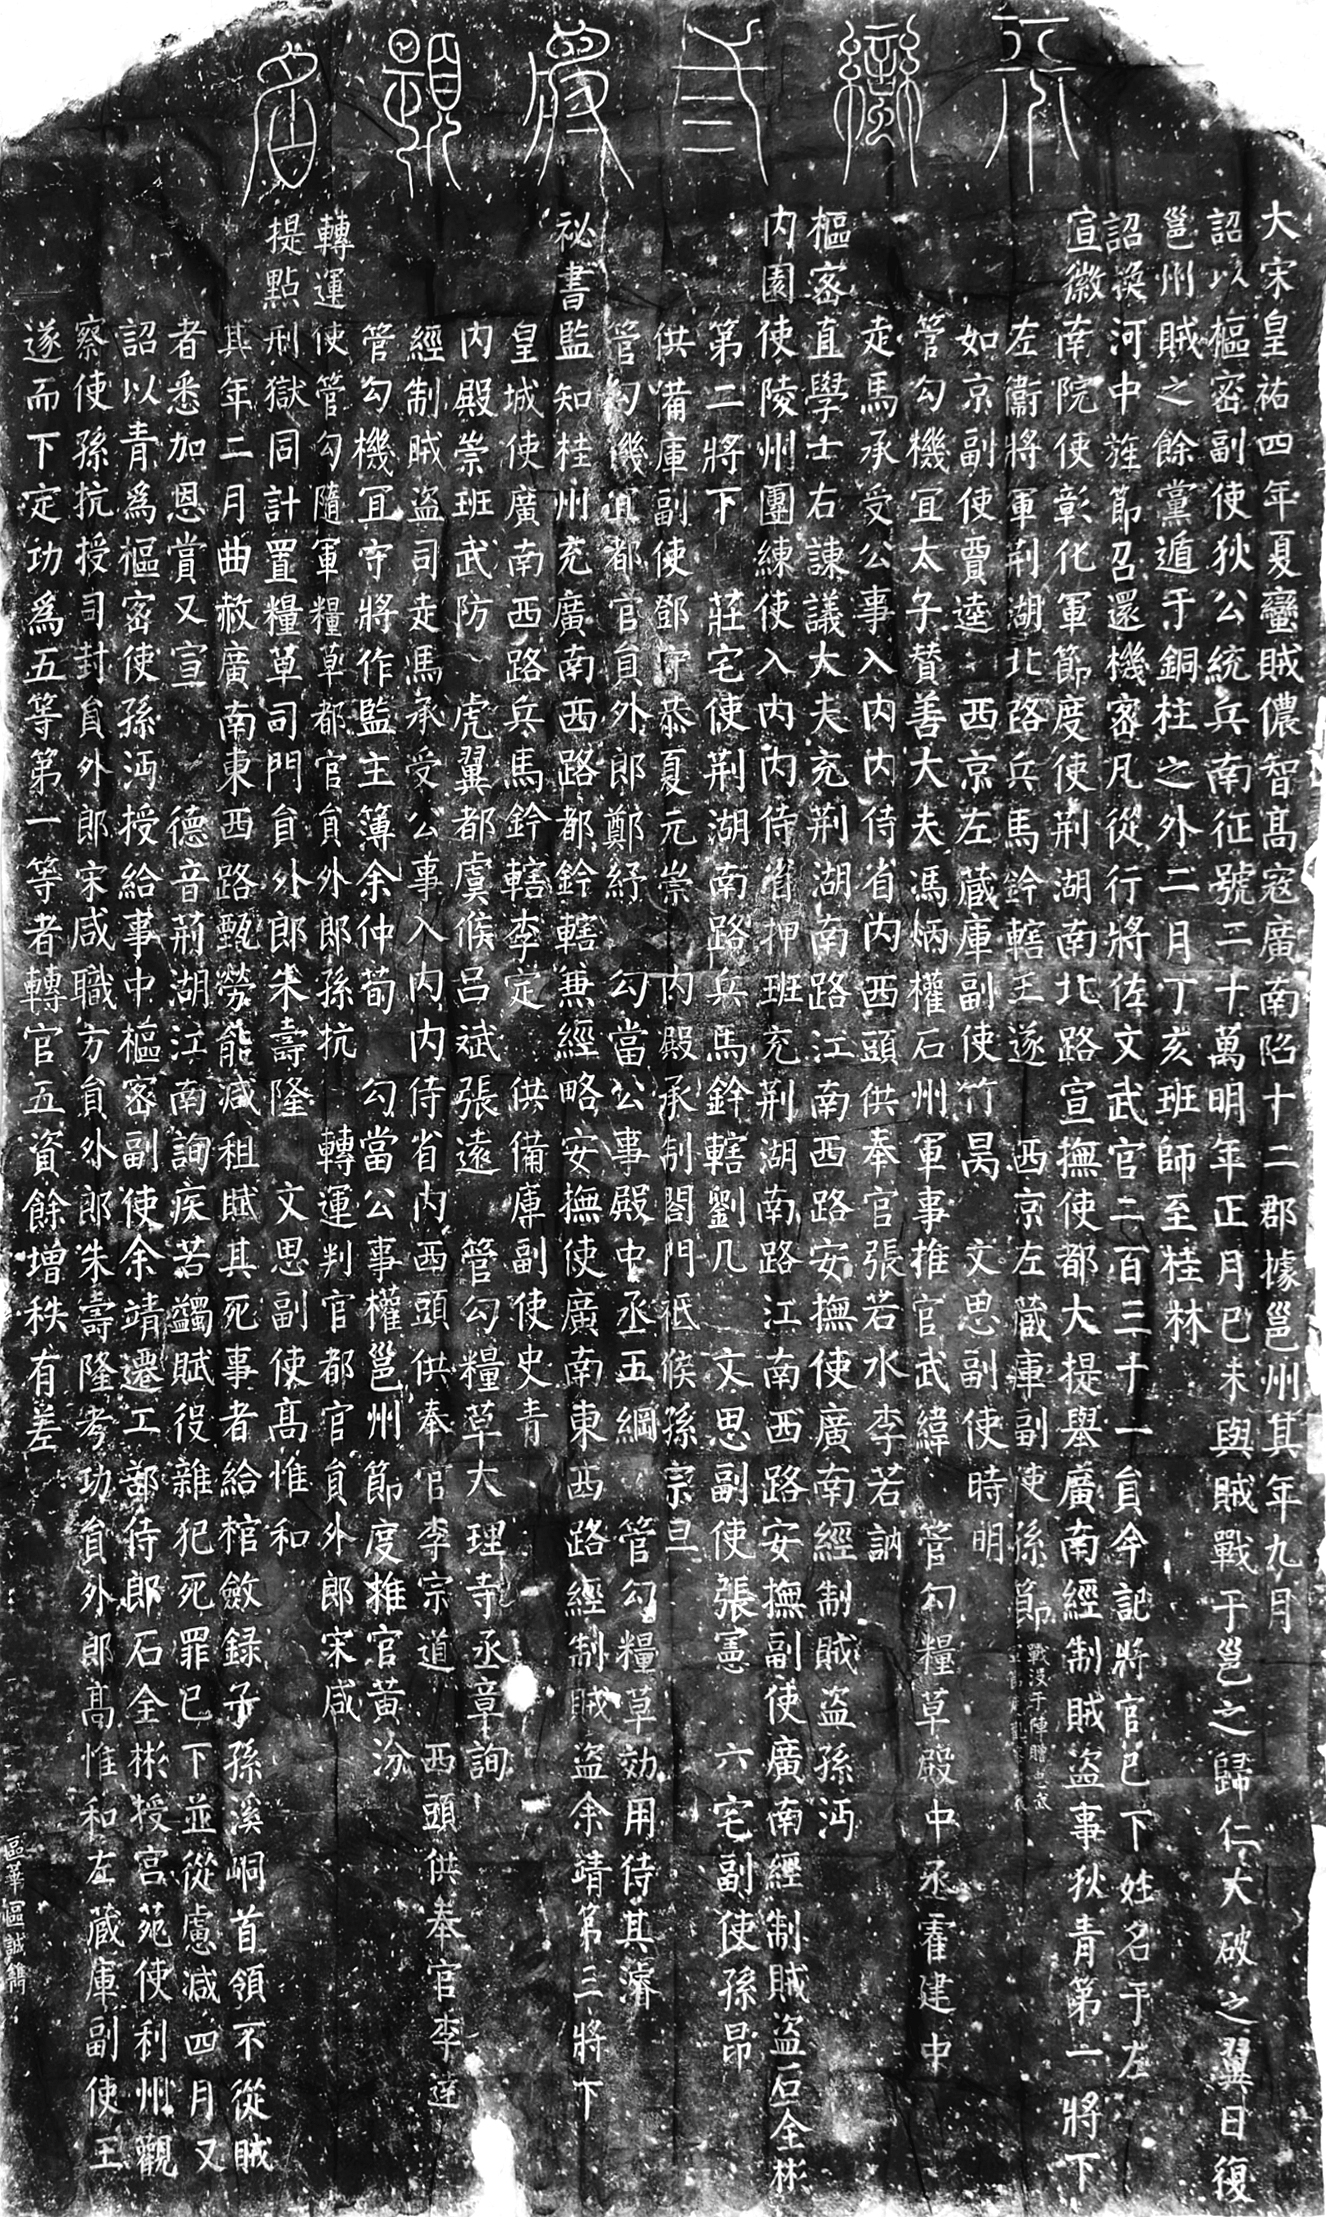 平蠻三將題名
大宋皇祐四年夏蠻賊儂智髙寇廣南陷十二郡據邕州其年九月
詔以樞密副使狄公統兵南征號二十萬明年正月己未與賊戰于邕之歸仁大破之翼日復
邕州賊之餘黨遁于銅柱之外二月丁亥班師至桂林
詔換河中旌節召還機密凡從行將佐文武官二百三十一員今記將官已下姓名于左
宣徽南院使彰化軍節度使荆湖南北路宣撫使都大提舉廣南經制賊盜事狄青第一將下
左衞將軍荆湖北路兵馬鈐轄王遂 西京左藏庫副使孫節 戰没于陣贈忠武
如京副使賈逵 西京左藏庫副使竹昺 文思副使時明
管勾機宜太子賛善大夫馮炳權石州軍事推官武緯 管勾糧草殿中丞霍建中
走馬承受公事入内内侍省内西頭供奉官張若水李若訥
樞密直學士右諫議大夫充荆湖南路江南西路安撫使廣南經制賊盜孫沔
内園使陵州團練使入内内侍省押班充荆湖南路江南西路安撫副使廣南經制賊盜石全彬
第二將下 莊宅使荆湖南路兵馬鈐轄劉几 文思副使張憲 六宅副使孫昂
供備庫副使鄧守恭夏元崇 内殿承制閤門祗候孫宗旦
管勾機宜都官員外郎鄭紓 勾當公事殿中丞五綱 管勾糧草効用侍其濬
祕書監知桂州充廣南西路都鈐轄兼經略安撫使廣南東西路經制賊盜余靖第三將下
皇城使廣南西路兵馬鈐轄李定 供備庫副使史青
内殿崇班武防 虎翼都虞候吕斌張遠 管勾糧草大理寺丞章詢
經制賊盜司走馬承受公事入内内侍省内西頭供奉官李宗道 西頭供奉官李逵
管勾機宜守將作監主簿余仲荀 勾當公事權邕州節度推官黄汾
轉運使管勾隨軍糧草都官員外郎孫抗 轉運判官都官員外郎宋咸
提點刑獄同計置糧草司門員外郎朱壽隆 文思副使髙惟和
其年二月曲赦廣南東西路甄勞能减租賦其死事者給棺斂録子孫溪峒首領不從賊
者悉加恩賞又宣 德音荊湖江南詢疾苦蠲賦役雜犯死罪已下並從慮减四月又
詔以青爲樞密使孫沔授給事中樞密副使余靖遷工部侍郎石全彬授宫苑使利州觀
察使孫抗授司封員外郎宋咸職方員外郎朱壽隆考功員外郎髙惟和左藏庫副使王
遂而下定功爲五等第一等者轉官五資餘增秩有差
區華區誠鐫